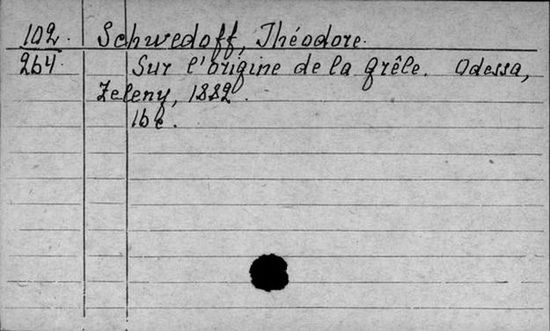 102. Schwedoff, Théodore.
264 Sur l'origine de la grêle. Odessa,
Zeleny, 1882.
16 c.